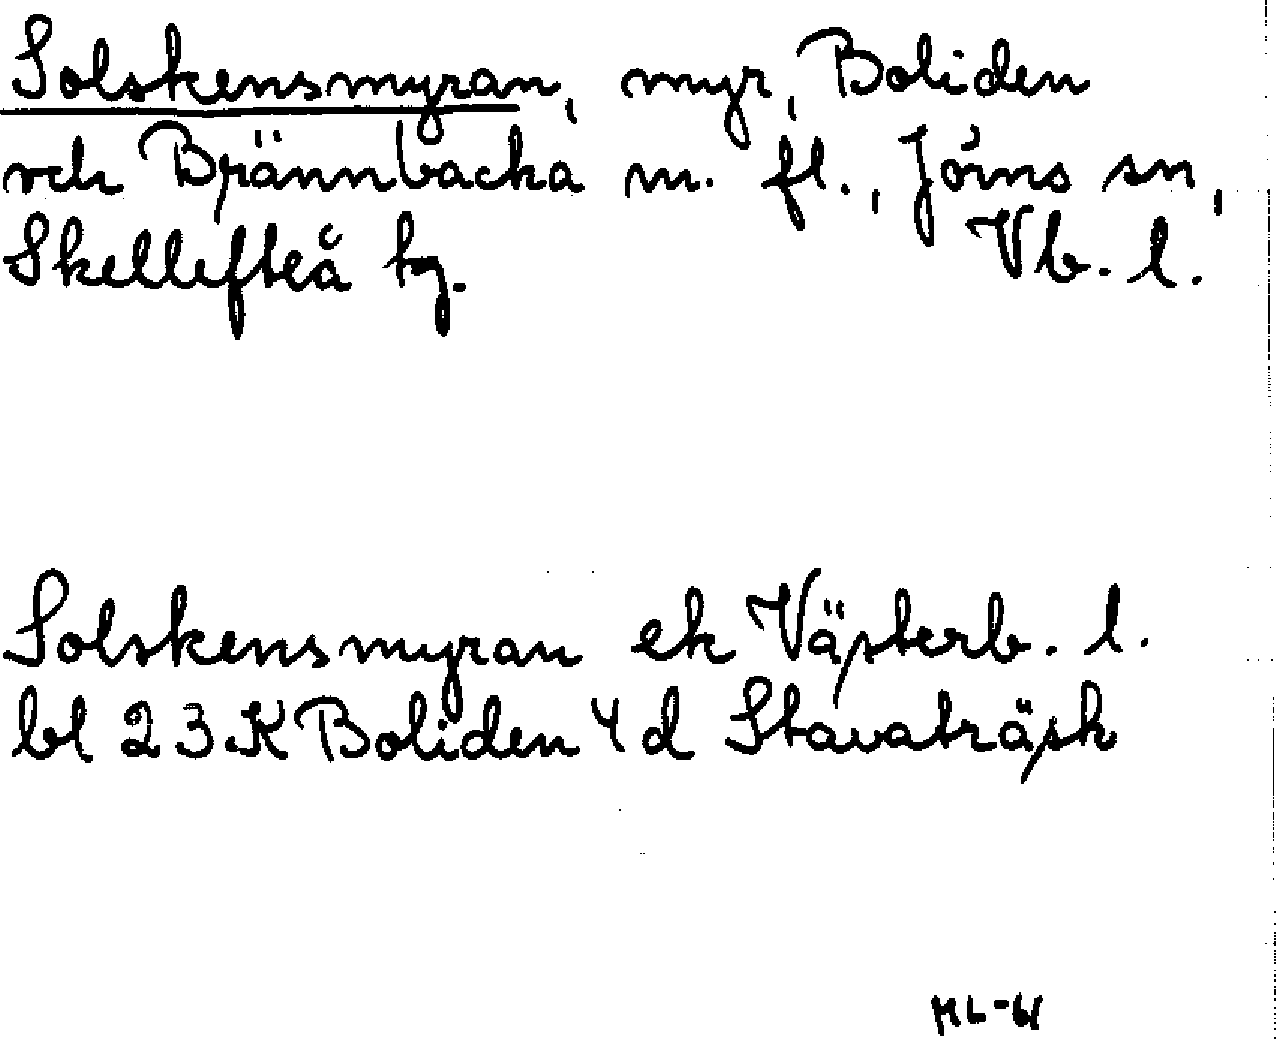 Solskensmyran, myr, Boliden
och Brännbacka m. fl., Jörns sn,
Skellefteå tg. Vb. l.
Solskensmyran ek Västerb. l.
bl 23K Boliden 4d Stavaträsk